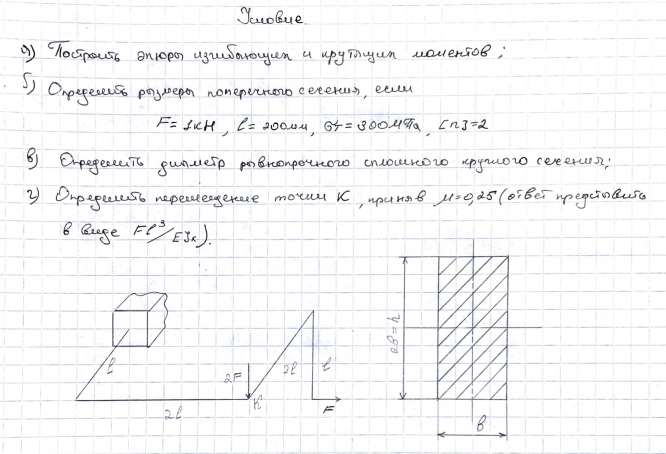 Условие.
а) Построить эпюры изгибающих и крутящих моментов;
б) Определить размеры поперечного сечения, если
F=1кН, l=200мм, бт=300МПа, [n]=2
в) Определить диаметр равнопрочного сплошного круглого сечения;
г) Определить перемещение точки К, приняв μ=0,25 (ответ представить
в виде Fl³/EJx).
l
2F
K
2l
l
F
2l
2в=h
в